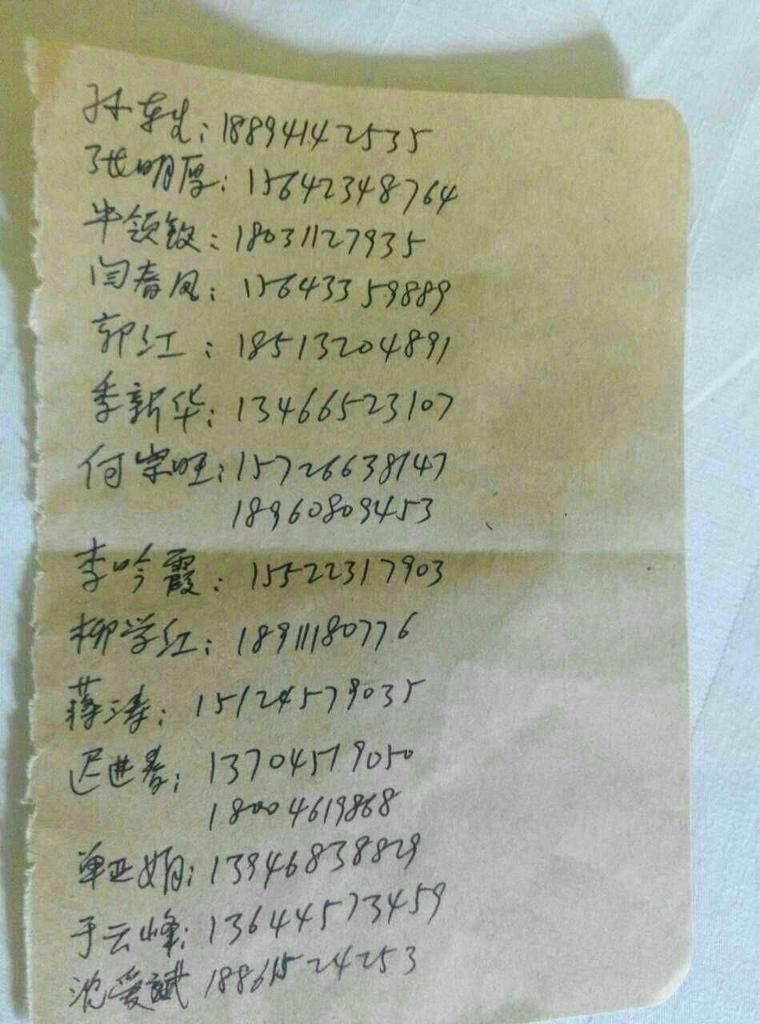 孙东生：18894142535
张明厚：15642348764
牛领钗：18031127935
闫春凤：15643359889
郭红：18513204891
季新华：13466523107
付崇旺：15726638147
18960809453
李吟霞：15522317903
柳学红：18911180776
蒋涛：15124579035
迟进春：13704579050
18004619868
单亚娟：13946838829
于云峰：13644573459
沈爱斌 18861524253